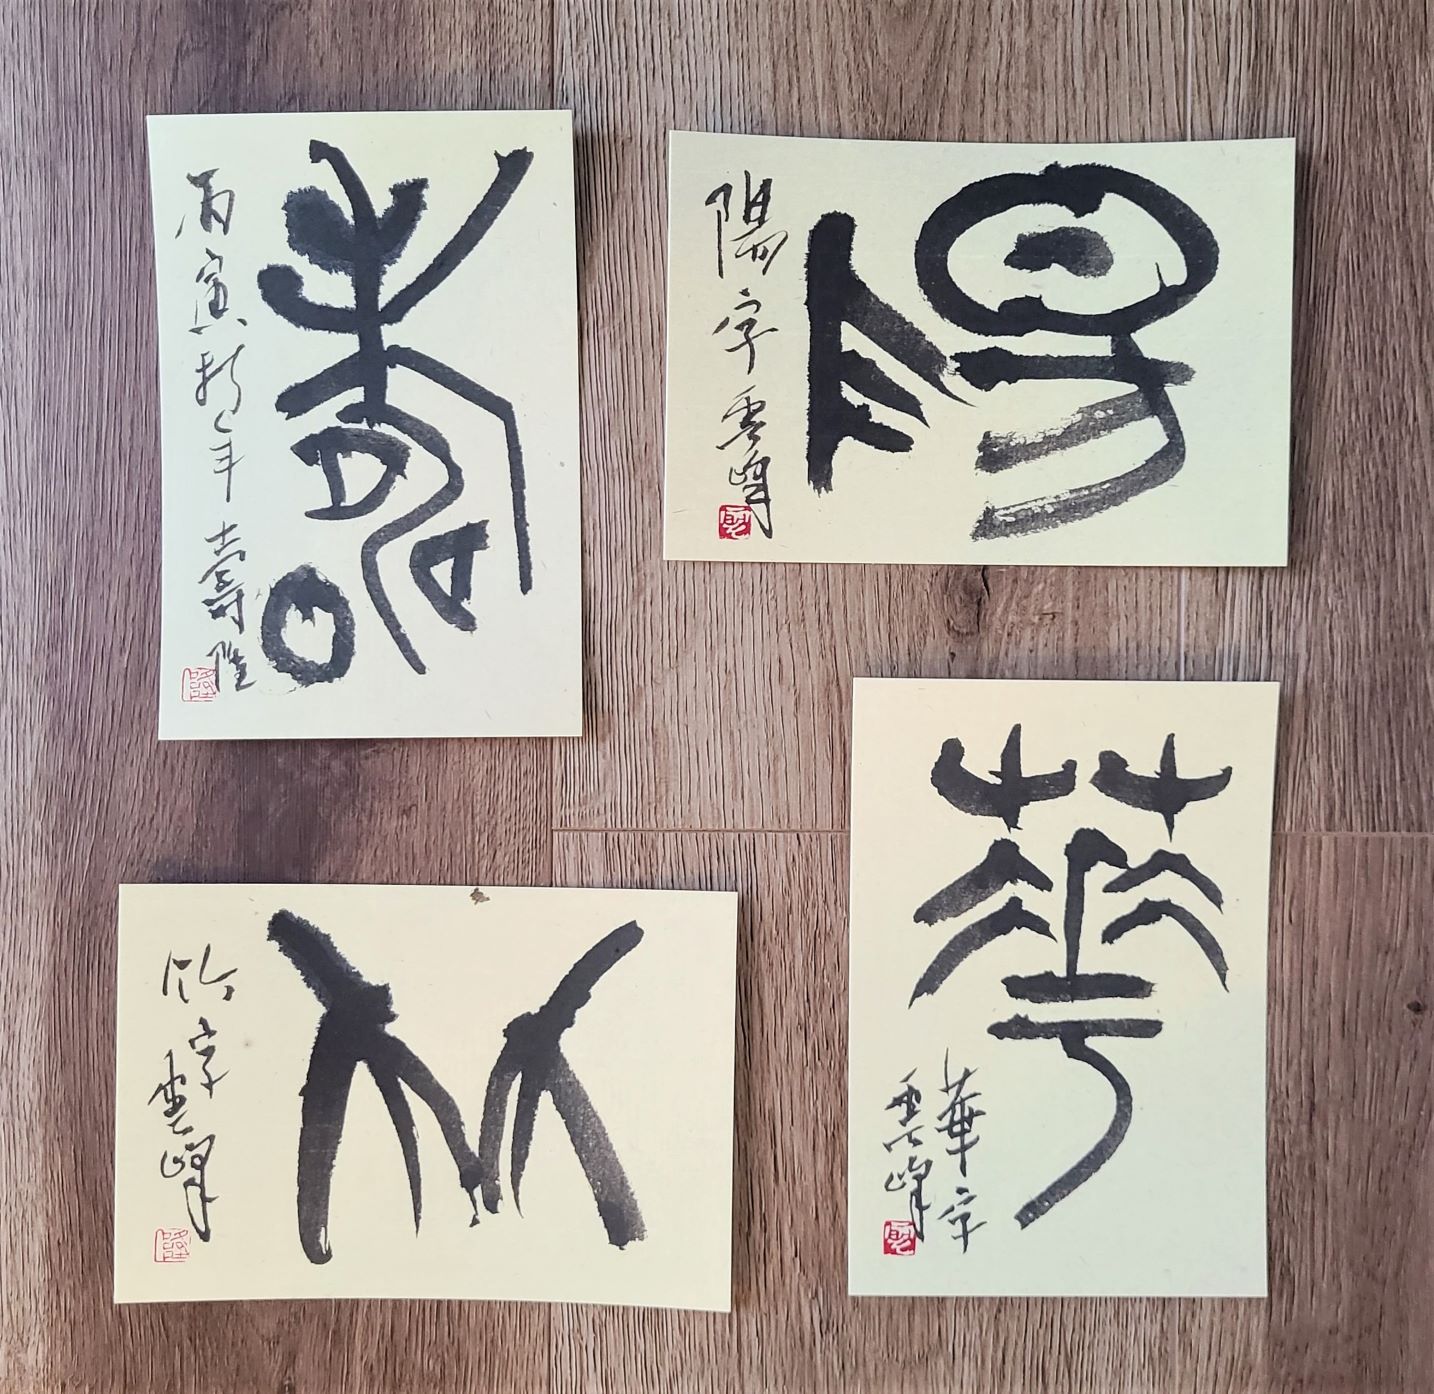 壽
丙寅新年 壽隆
陽
陽字 雲峰
竹
竹字 雲峰
華
華字
雲峰